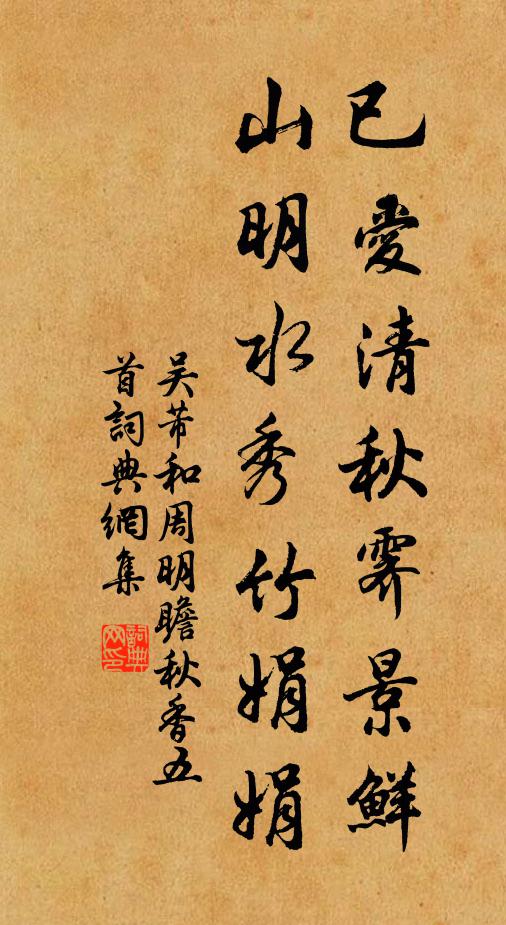 已愛清秋霽景鮮
山明水秀竹娟娟
吴芾和周明瞻秋香五
首詞典網集
詞典
网印